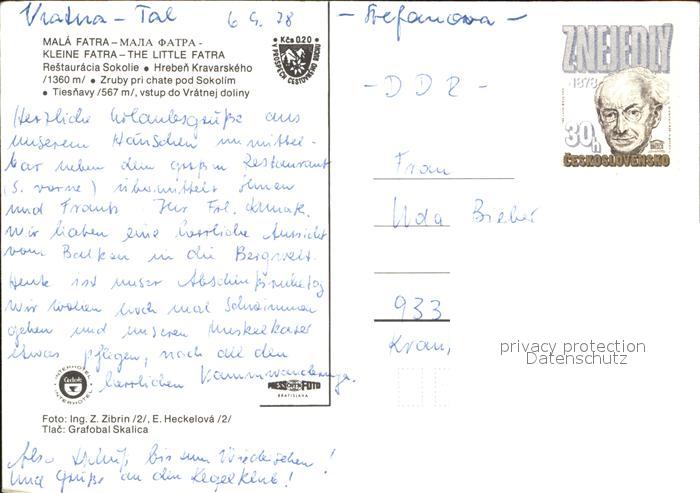 Vratna - Tal 6.9.78 - Stefanova -
MALÁ FATRA - МАЛА ФАТРА -
KLEINE FATRA - THE LITTLE FATRA
Reštaurácia Sokolie • Hrebeň Kravarského
/1360 m/ • Zruby pri chate pod Sokolím
• Tiesňavy /567 m/, vstup do Vrátnej doliny
Kčs 0.20
V PROSPECH CESTOVNÉHO RUCHU
ZNEJEDLÝ
1878
30h
ČESKOSLOVENSKO
- DDR -
Herzliche Urlaubsgrüße aus
unserem Häuschen unmittel-
bar neben dem großen Restaurant
(s. vorne) übermittelt Ihnen
und Frank Ihr Frl.
Wir haben eine herrliche Aussicht
vom Balkon in die Bergwelt.
Heute ist unser
Wir wollen noch mal Schwimmen
gehen und unseren Muskelkater
etwas pflegen, nach all den
herrlichen Kammwanderungen.
Frau
Uda Bieber
933
Kran,
privacy protection
Datenschutz
INTERHOTEL
Čedok
INTERHOTEL
PRESSFOTO
BRATISLAVA
Foto: Ing. Z. Zibrin /2/, E. Heckelová /2/
Tlač: Grafobal Skalica
Also bis zum Wiedersehen!
und Grüße an den Kegelklub!